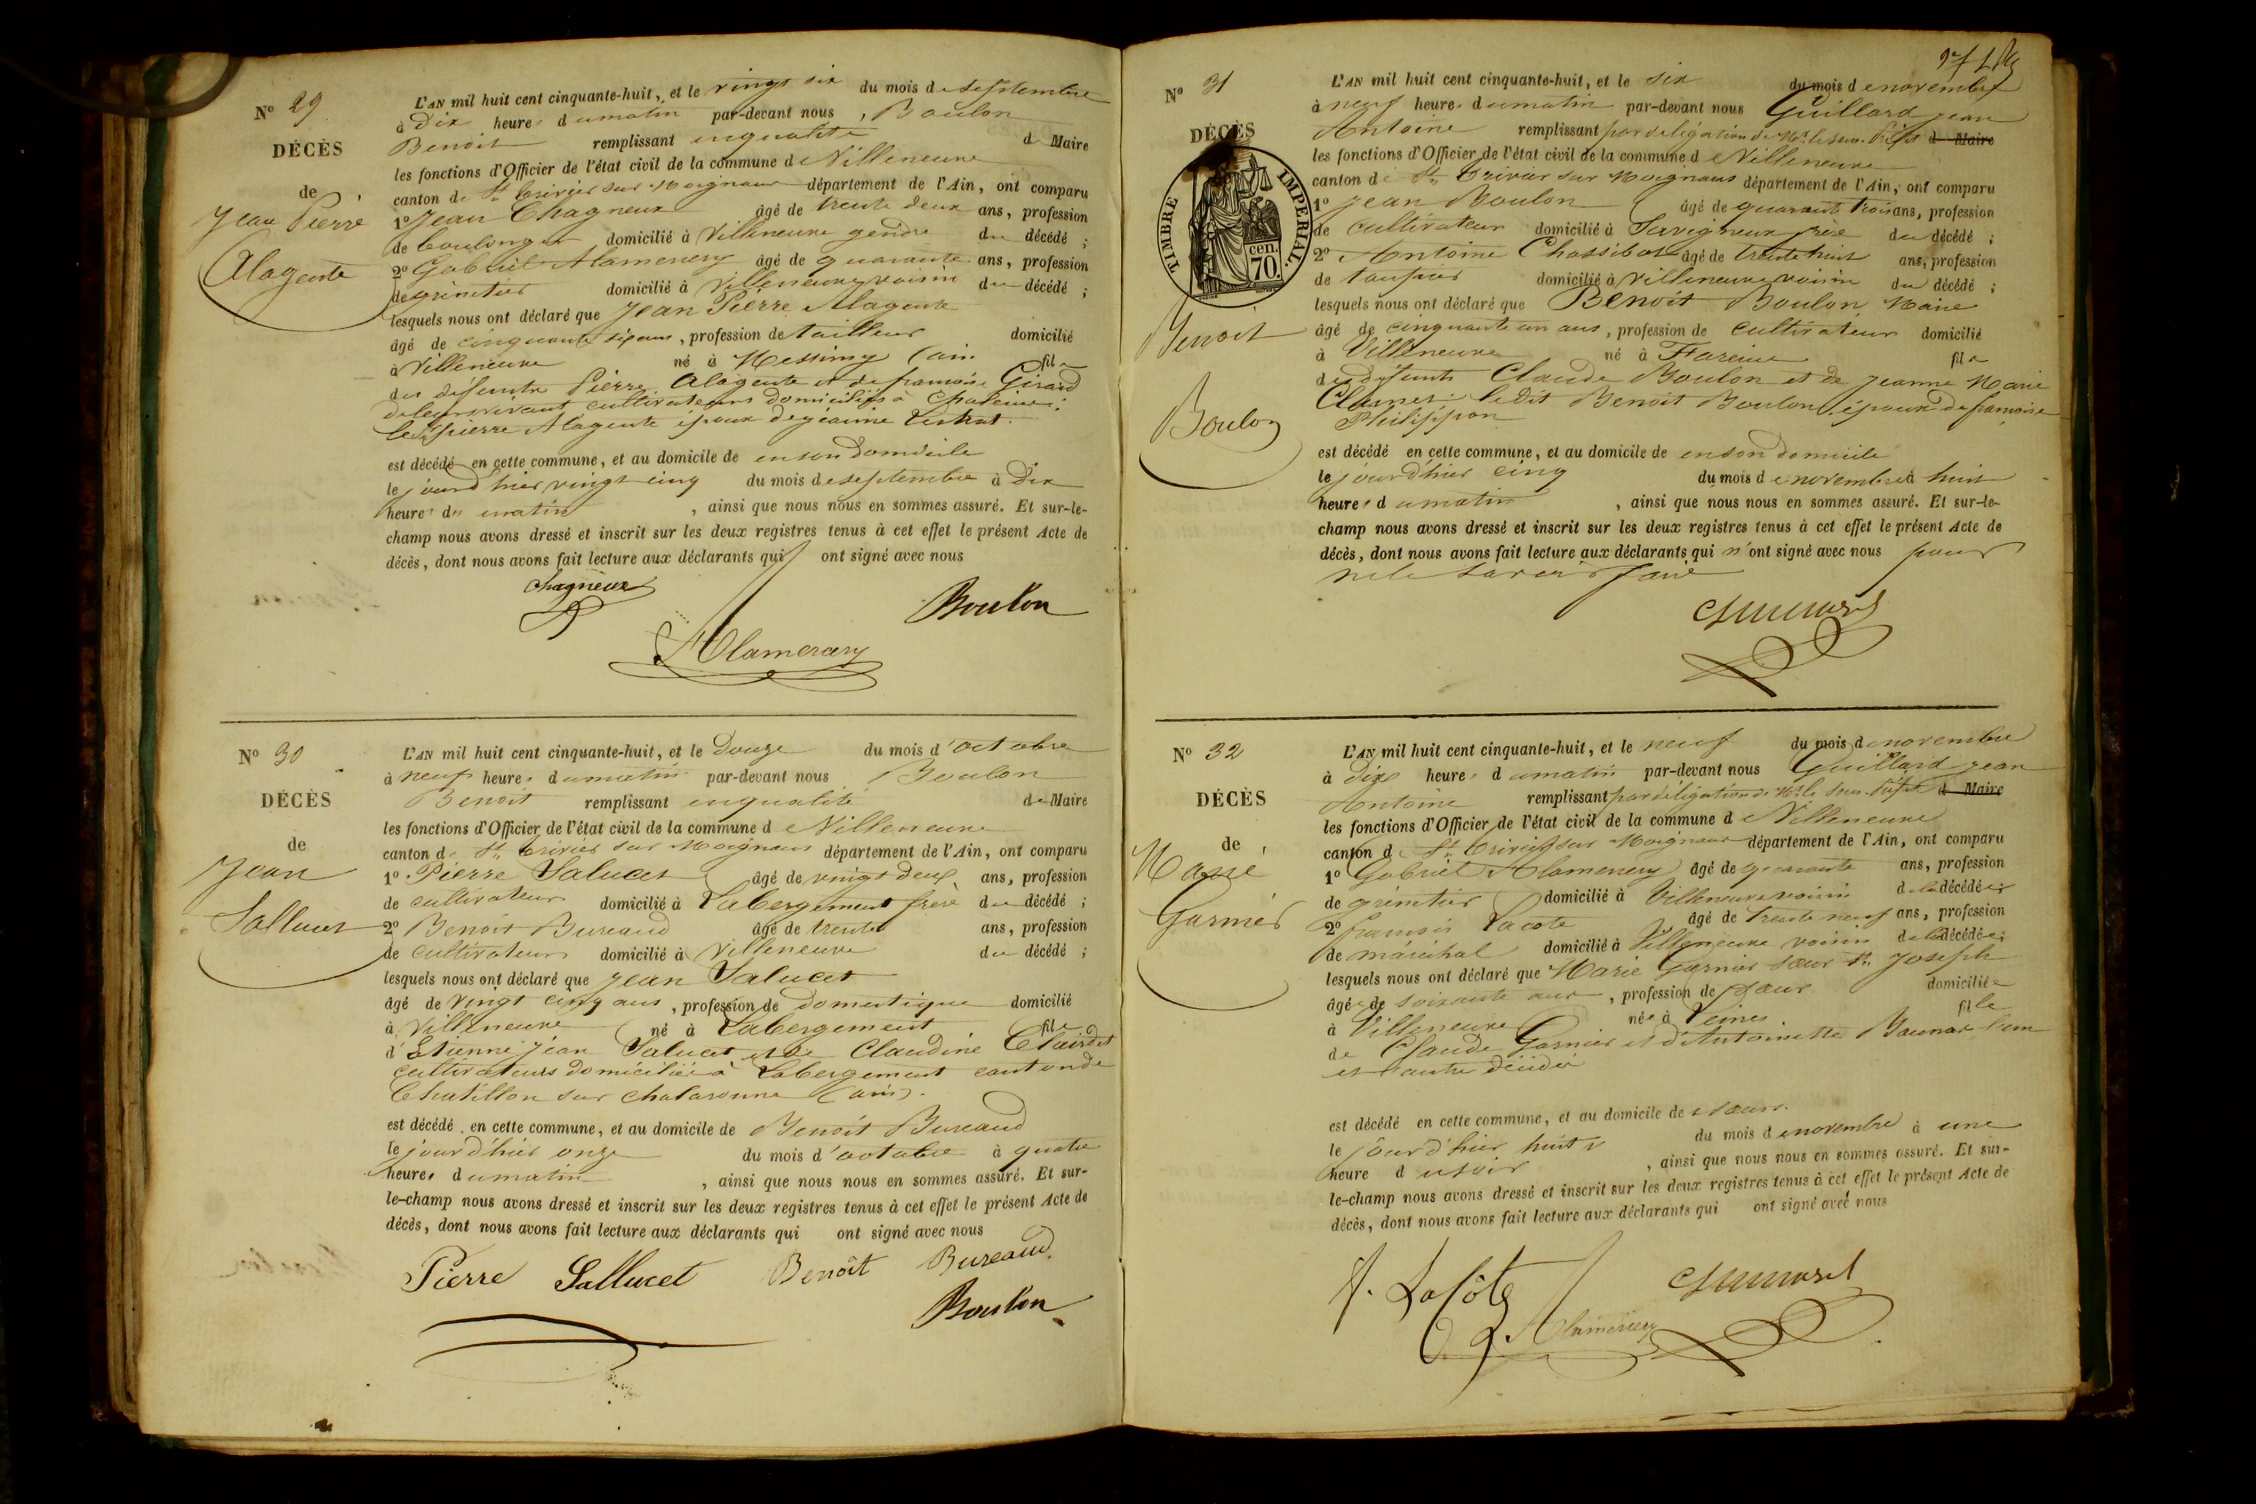 N° 29
DÉCÈS
de
Jean Pierre
Alagente
L'AN mil huit cent cinquante-huit, et le vingt six du mois de septembre
à dix heures du matin par-devant nous, Boulon
Benoit remplissant en qualité de Maire
les fonctions d'Officier de l'état civil de la commune de Villeneuve
canton de St Trivier sur Moignans département de l'Ain, ont comparu
1° Jean Chagneux âgé de trente deux ans, profession
de boulanger domicilié à Villeneuve gendre du décédé ;
2° Gabriel Alamercery âgé de quarante ans, profession
de grénetier domicilié à Villeneuve voisin du décédé ;
lesquels nous ont déclaré que Jean Pierre Alagente
âgé de cinquante six ans, profession de tailleur domicilié
à Villeneuve né à Messimy (ain fils
des défunts Pierre Alagente et de françoise Giraud
de leurs vivant cultivateurs domiciliés à Chaleins ;
le pierre Alagente époux de jeanne
est décédé en cette commune, et au domicile de en son domicile
le jourd'hier vingt cinq du mois de septembre à dix
heures du matin, ainsi que nous nous en sommes assuré. Et sur-le-
champ nous avons dressé et inscrit sur les deux registres tenus à cet effet le présent Acte de
décès, dont nous avons fait lecture aux déclarants qui ont signé avec nous
Chagneux
Boulon
Alamercery
N° 30
DÉCÈS
de
Jean
Sallucet
L'AN mil huit cent cinquante-huit, et le douze du mois d'octobre
à neuf heures du matin par-devant nous Boulon
Benoit remplissant en qualité de Maire
les fonctions d'Officier de l'état civil de la commune de Villeneuve
canton de St Trivier sur Moignans département de l'Ain, ont comparu
1° Pierre Salucet âgé de vingt deux ans, profession
de cultivateur domicilié à Labergement frère du décédé ;
2° Benoit Bureaud âgé de trente ans, profession
de cultivateur domicilié à Villeneuve du décédé ;
lesquels nous ont déclaré que Jean Salucet
âgé de vingt cinq ans, profession de domestique domicilié
à Villeneuve né à Labergement fils
d'Etienne jean Salucet et de Claudine
cultivateurs domiciliés à Labergement canton de
Chatillon sur chalaronne (ain).
est décédé en cette commune, et au domicile de Benoit Bureaud
le jourd'hier onze du mois d'octobre à quatre
heures du matin, ainsi que nous nous en sommes assuré. Et sur-
le-champ nous avons dressé et inscrit sur les deux registres tenus à cet effet le présent Acte de
décès, dont nous avons fait lecture aux déclarants qui ont signé avec nous
Pierre Sallucet Benoît Bureaud
Boulon
N° 31
DÉCÈS
TIMBRE IMPERIAL.
70 cen.
Benoit
Boulon
L'AN mil huit cent cinquante-huit, et le six du mois de novembre
à neuf heures du matin par-devant nous Guillard jean
Antoine remplissant par délégation de Mr. le sous-Préfet de Maire
les fonctions d'Officier de l'état civil de la commune de Villeneuve
canton de St Trivier sur Moignans département de l'Ain, ont comparu
1° Jean Boulon âgé de quarante trois ans, profession
de cultivateur domicilié à Savigneux frère du décédé ;
2° Antoine Chassibot âgé de trente huit ans, profession
de taupier domicilié à Villeneuve voisin du décédé ;
lesquels nous ont déclaré que Benoit Boulon, Maire
âgé de cinquante un ans, profession de cultivateur domicilié
à Villeneuve né à Fareins fils
des défunts Claude Boulon et de jeanne Marie
ledit Benoit Boulon, époux de françoise
Philippon
est décédé en cette commune, et au domicile de en son domicile
le jourd'hier cinq du mois de novembre à huit
heures du matin, ainsi que nous nous en sommes assuré. Et sur-le-
champ nous avons dressé et inscrit sur les deux registres tenus à cet effet le présent Acte de
décès, dont nous avons fait lecture aux déclarants qui n'ont signé avec nous pour
ne le savoir faire
N° 32
DÉCÈS
de
Marie
Garnier
L'AN mil huit cent cinquante-huit, et le neuf du mois de novembre
à dix heures du matin par-devant nous Guillard jean
Antoine remplissant par délégation de Mr. le sous-Préfet de Maire
les fonctions d'Officier de l'état civil de la commune de Villeneuve
canton de St Trivier sur Moignans département de l'Ain, ont comparu
1° Gabriel Alamercery âgé de quarante ans, profession
de grénetier domicilié à Villeneuve voisin de la décédée ;
2° françois Lacote âgé de trente neuf ans, profession
de maréchal domicilié à Villeneuve voisin de la décédée ;
lesquels nous ont déclaré que Marie Garnier sœur St. Joseph
âgée de soixante ans, profession de sœur domiciliée
à Villeneuve née à fille
de Claude Garnier et d'Antoinette l'un
et l'autre décédés
est décédé en cette commune, et au domicile de
le jourd'hier huit du mois de novembre à une
heure du soir, ainsi que nous nous en sommes assuré. Et sur-
le-champ nous avons dressé et inscrit sur les deux registres tenus à cet effet le présent Acte de
décès, dont nous avons fait lecture aux déclarants qui ont signé avec nous
f. Lacôte
G. Alamercery